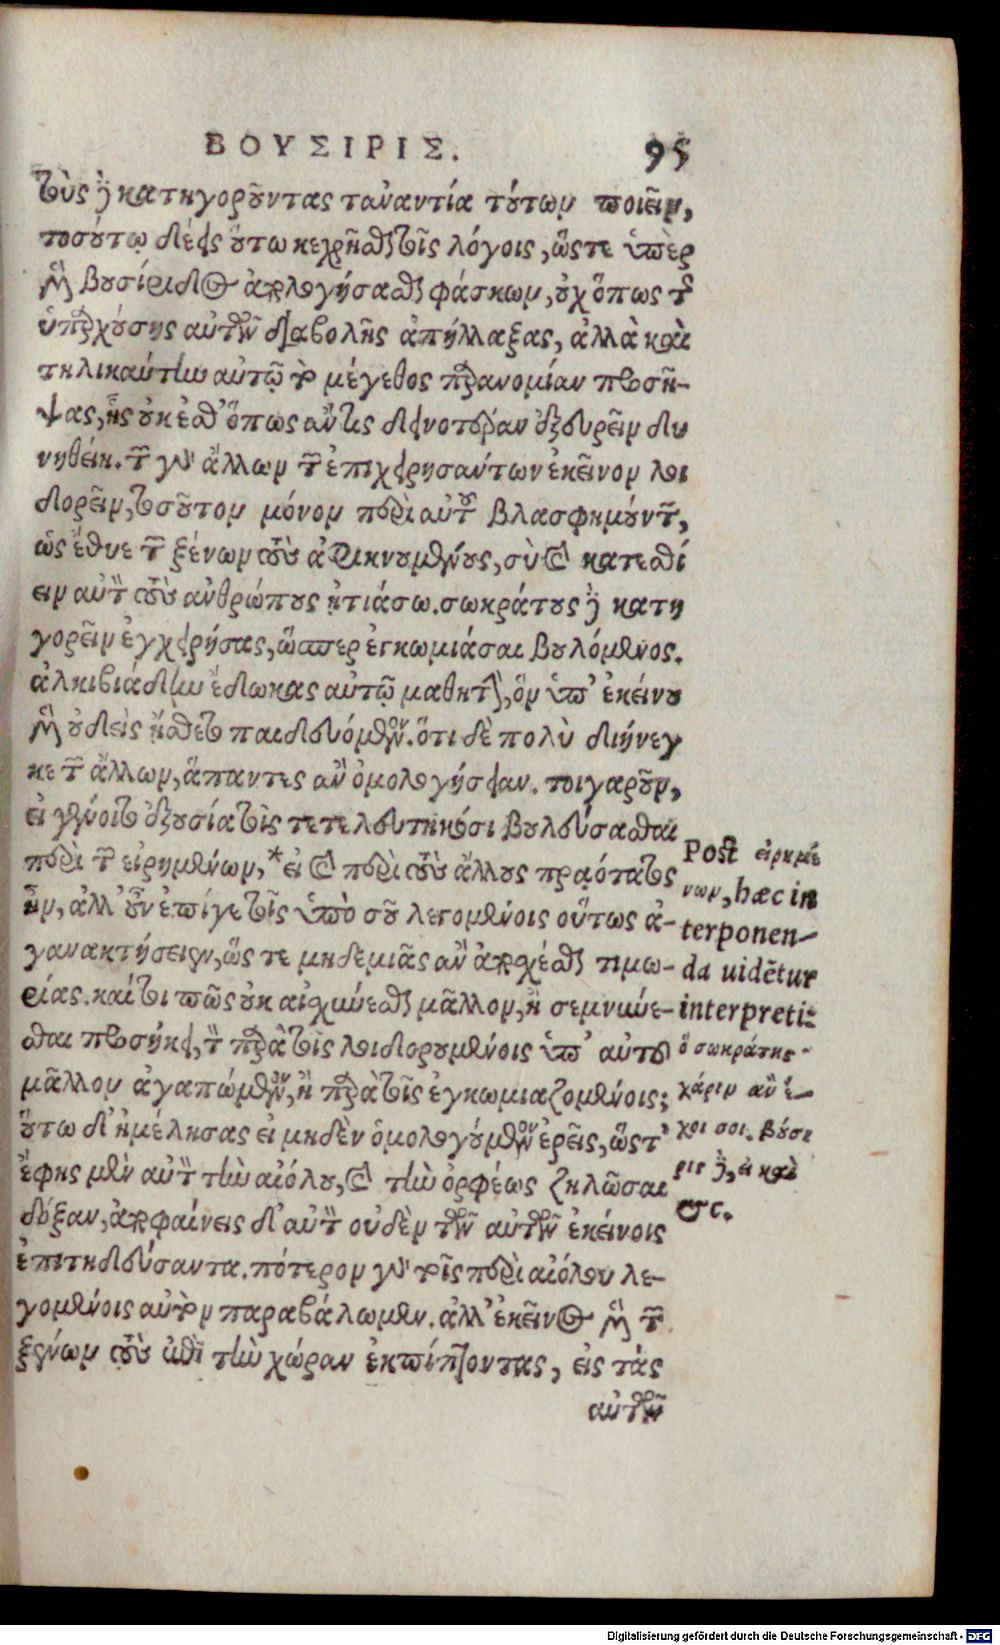 ΒΟΥΣΙΡΙΣ. 95
τοὺς δὲ κατηγοροῦντας τἀναντία τούτων ποιεῖν,
τοσούτῳ δέεις οὕτω κεχρῆσθαι τοῖς λόγοις, ὥστε ὑπὲρ
μὴν βουσίριδος ἀπολογήσασθαι φάσκων, οὐχ ὅπως τῆς
ὑπαρχούσης αὐτῶν διαβολῆς ἀπήλλαξας, ἀλλὰ καὶ
τηλικαύτην αὐτῷ τὸ μέγεθος παρανομίαν προσῆ-
ψας, ἧς οὐκ ἔσθ' ὅπως ἄν τις δεινοτέραν ἐξευρεῖν δυ
νηθείη. τῶν γὰρ ἄλλων τῶν ἐπιχειρησάντων ἐκεῖνον λοι
δορεῖν, τοσοῦτον μόνον περὶ αὐτοῦ βλασφημούντων,
ὡς ἔθυε τῶν ξένων τοὺς ἀφικνουμένους, σὺ καὶ κατεσθί
ειν αὐτὸν τοὺς ἀνθρώπους ᾐτιάσω. σωκράτους δὲ κατη
γορεῖν ἐγχειρήσας, ὥσπερ ἐγκωμιάσαι βουλόμενος.
ἀλκιβιάδην ἔδωκας αὐτῷ μαθητὴν, ὃν ὑπ' ἐκείνου
μὲν οὐδεὶς ᾔσθετο παιδευόμενον. ὅτι δὲ πολὺ διήνεγ
κε τῶν ἄλλων, ἅπαντες ἂν ὁμολογήσειαν. τοιγαροῦν,
εἰ γένοιτο ἐξουσία τοῖς τετελευτηκόσι βουλεύσασθαι
περὶ τῶν εἰρημένων,* εἰ καὶ περὶ τοὺς ἄλλους πραότατος
ἦν, ἀλλ' οὖν ἐπίγε τοῖς ὑπὸ σοῦ λεγομένοις οὕτως ἀ-
γανακτήσειεν, ὥς τε μηδεμιᾶς ἂν ἀποσχέσθαι τιμω-
ρίας. καίτοι πῶς οὐκ αἰσχύνεσθαι μᾶλλον, ἢ σεμνύνε-
σθαι προσήκει, τὸν παρὰ τοῖς λοιδορουμένοις ὑπ' αὐτοῦ
μᾶλλον ἀγαπώμενον, ἢ παρὰ τοῖς ἐγκωμιαζομένοις;
οὕτω δ' ἠμέλησας εἰ μηδὲν ὁμολογούμενον ἐρεῖς, ὥστ'
ἔφης μὲν αὐτὸν τὴν αἰόλου, καὶ τὴν ὀρφέως ζηλῶσαι
δόξαν, ἀποφαίνεις δ' αὐτὸν οὐδὲν τῶν αὐτῶν ἐκείνοις
ἐπιτηδεύσαντα. πότερον γὰρ τοῖς περὶ αἰόλου λε-
γομένοις αὐτὸν παραβάλωμεν. ἀλλ' ἐκεῖνος μὲν τῶν
ξένων τοὺς ἐπὶ τὴν χώραν ἐκπίπτοντας, εἰς τὰς
αὐτῶν
Post εἰρημέ
νων, hæc in
terponen-
da uidētur
interpreti:
ὁ σωκράτης
χάριν ἂν ἔ-
χοι σοι. Βούσι
ρις δὲ, εἰ καὶ
&c.
Digitalisierung gefördert durch die Deutsche Forschungsgemeinschaft - DFG